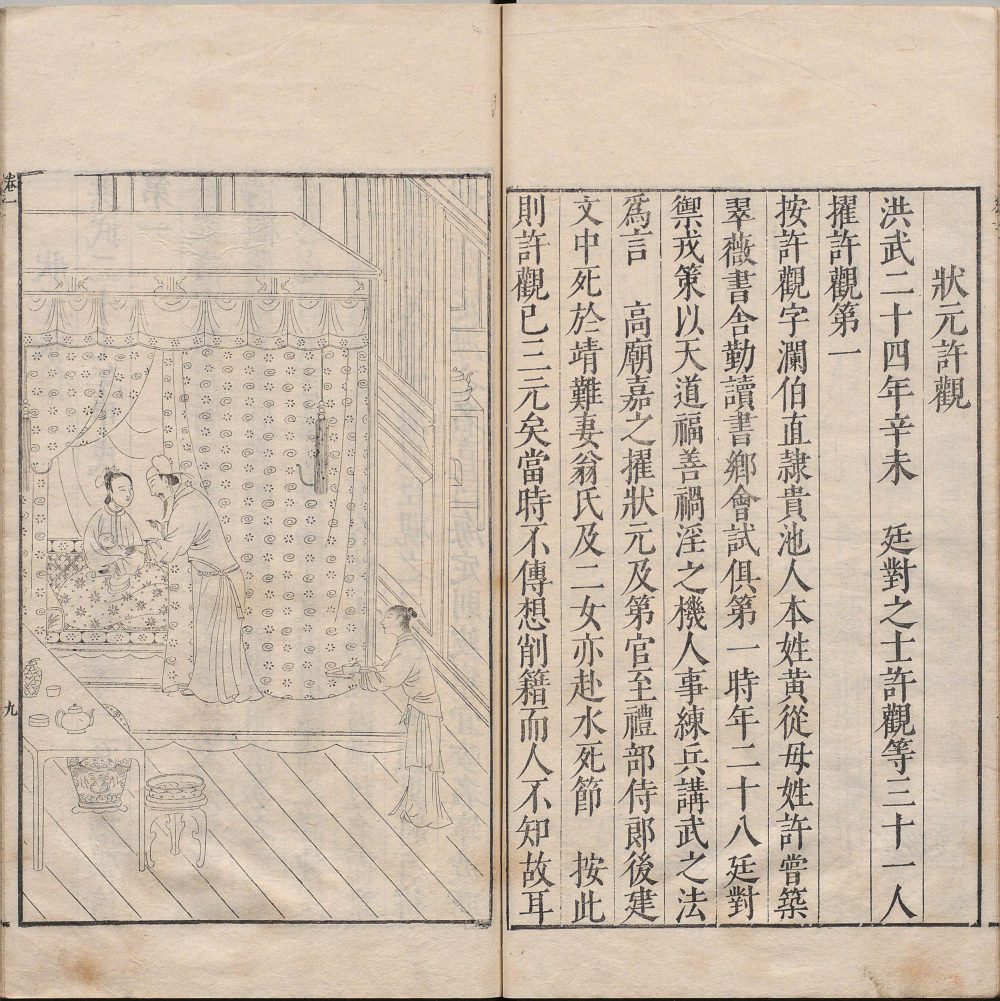 狀元許觀
洪武二十四年辛未 廷對之士許觀等三十一人
擢許觀第一
按許觀字瀾伯直隸貴池人本姓黃從母姓許嘗築
翠薇書舍勤讀書鄉會試俱第一時年二十八廷對
禦戎策以天道福善禍淫之機人事練兵講武之法
爲言 高廟嘉之擢狀元及第官至禮部侍郎後建
文中死於靖難妻翁氏及二女亦赴水死節 按此
則許觀已三元矣當時不傳想削籍而人不知故耳
卷一
九